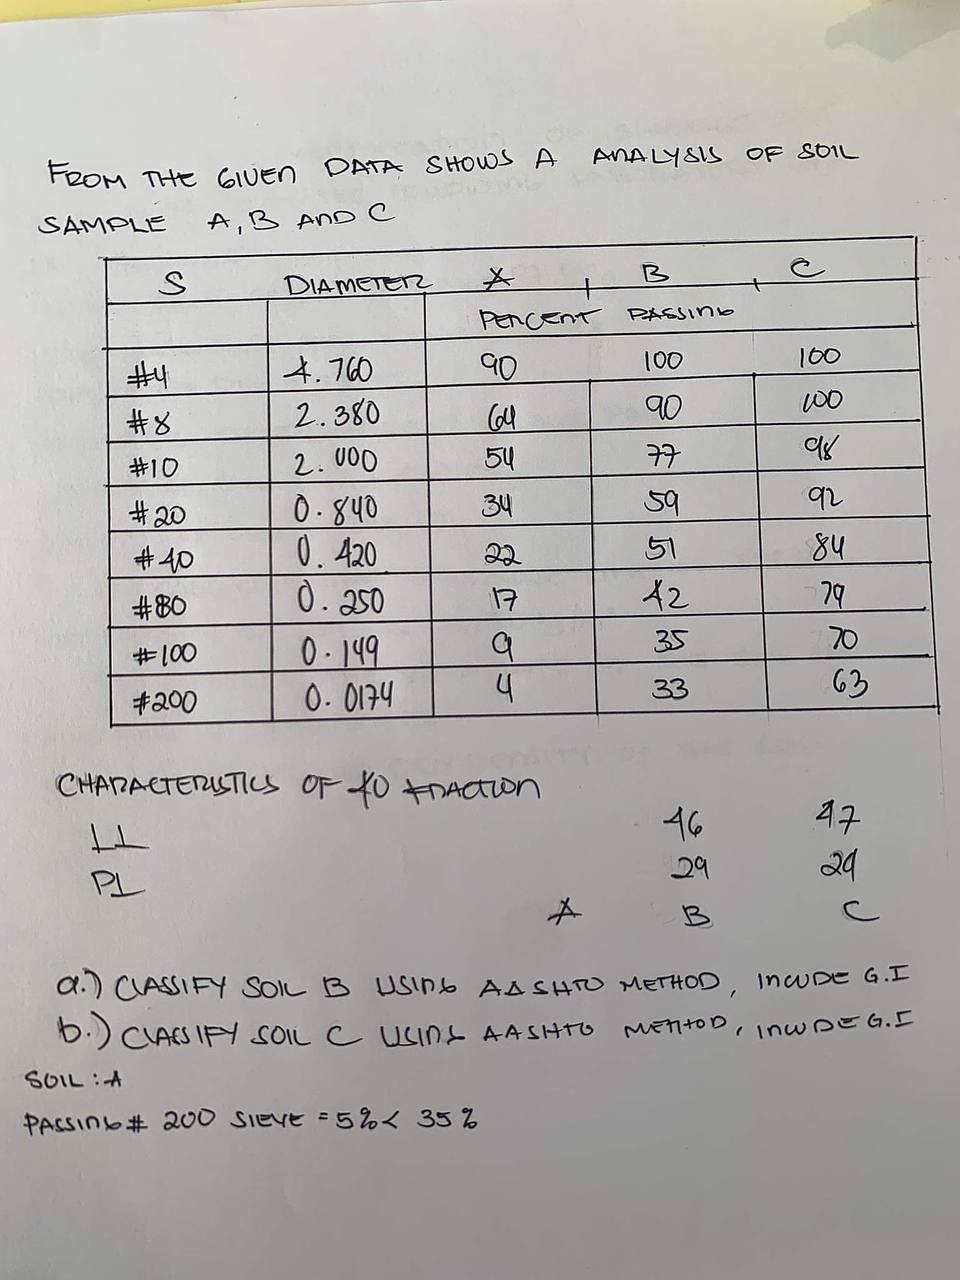 FROM THE GIVEN DATA SHOWS A ANALYSIS OF SOIL
SAMPLE A, B AND C
S DIAMETER A B C
PERCENT PASSING
#4 4.760 90 100 100
#8 2.380 64 90 100
#10 2.000 54 77 98
#20 0.840 34 59 92
#40 0.420 22 51 84
#80 0.250 17 42 79
#100 0.149 9 35 70
#200 0.0174 4 33 63
CHARACTERISTICS OF 40 FRACTION
LL 46 47
PL 29 24
A B C
a.) CLASSIFY SOIL B USING AASHTO METHOD, INCUDE G.I
b.) CLASSIFY SOIL C USING AASHTO METHOD, INCUDE G.I
SOIL : A
PASSING # 200 SIEVE = 5% < 35%